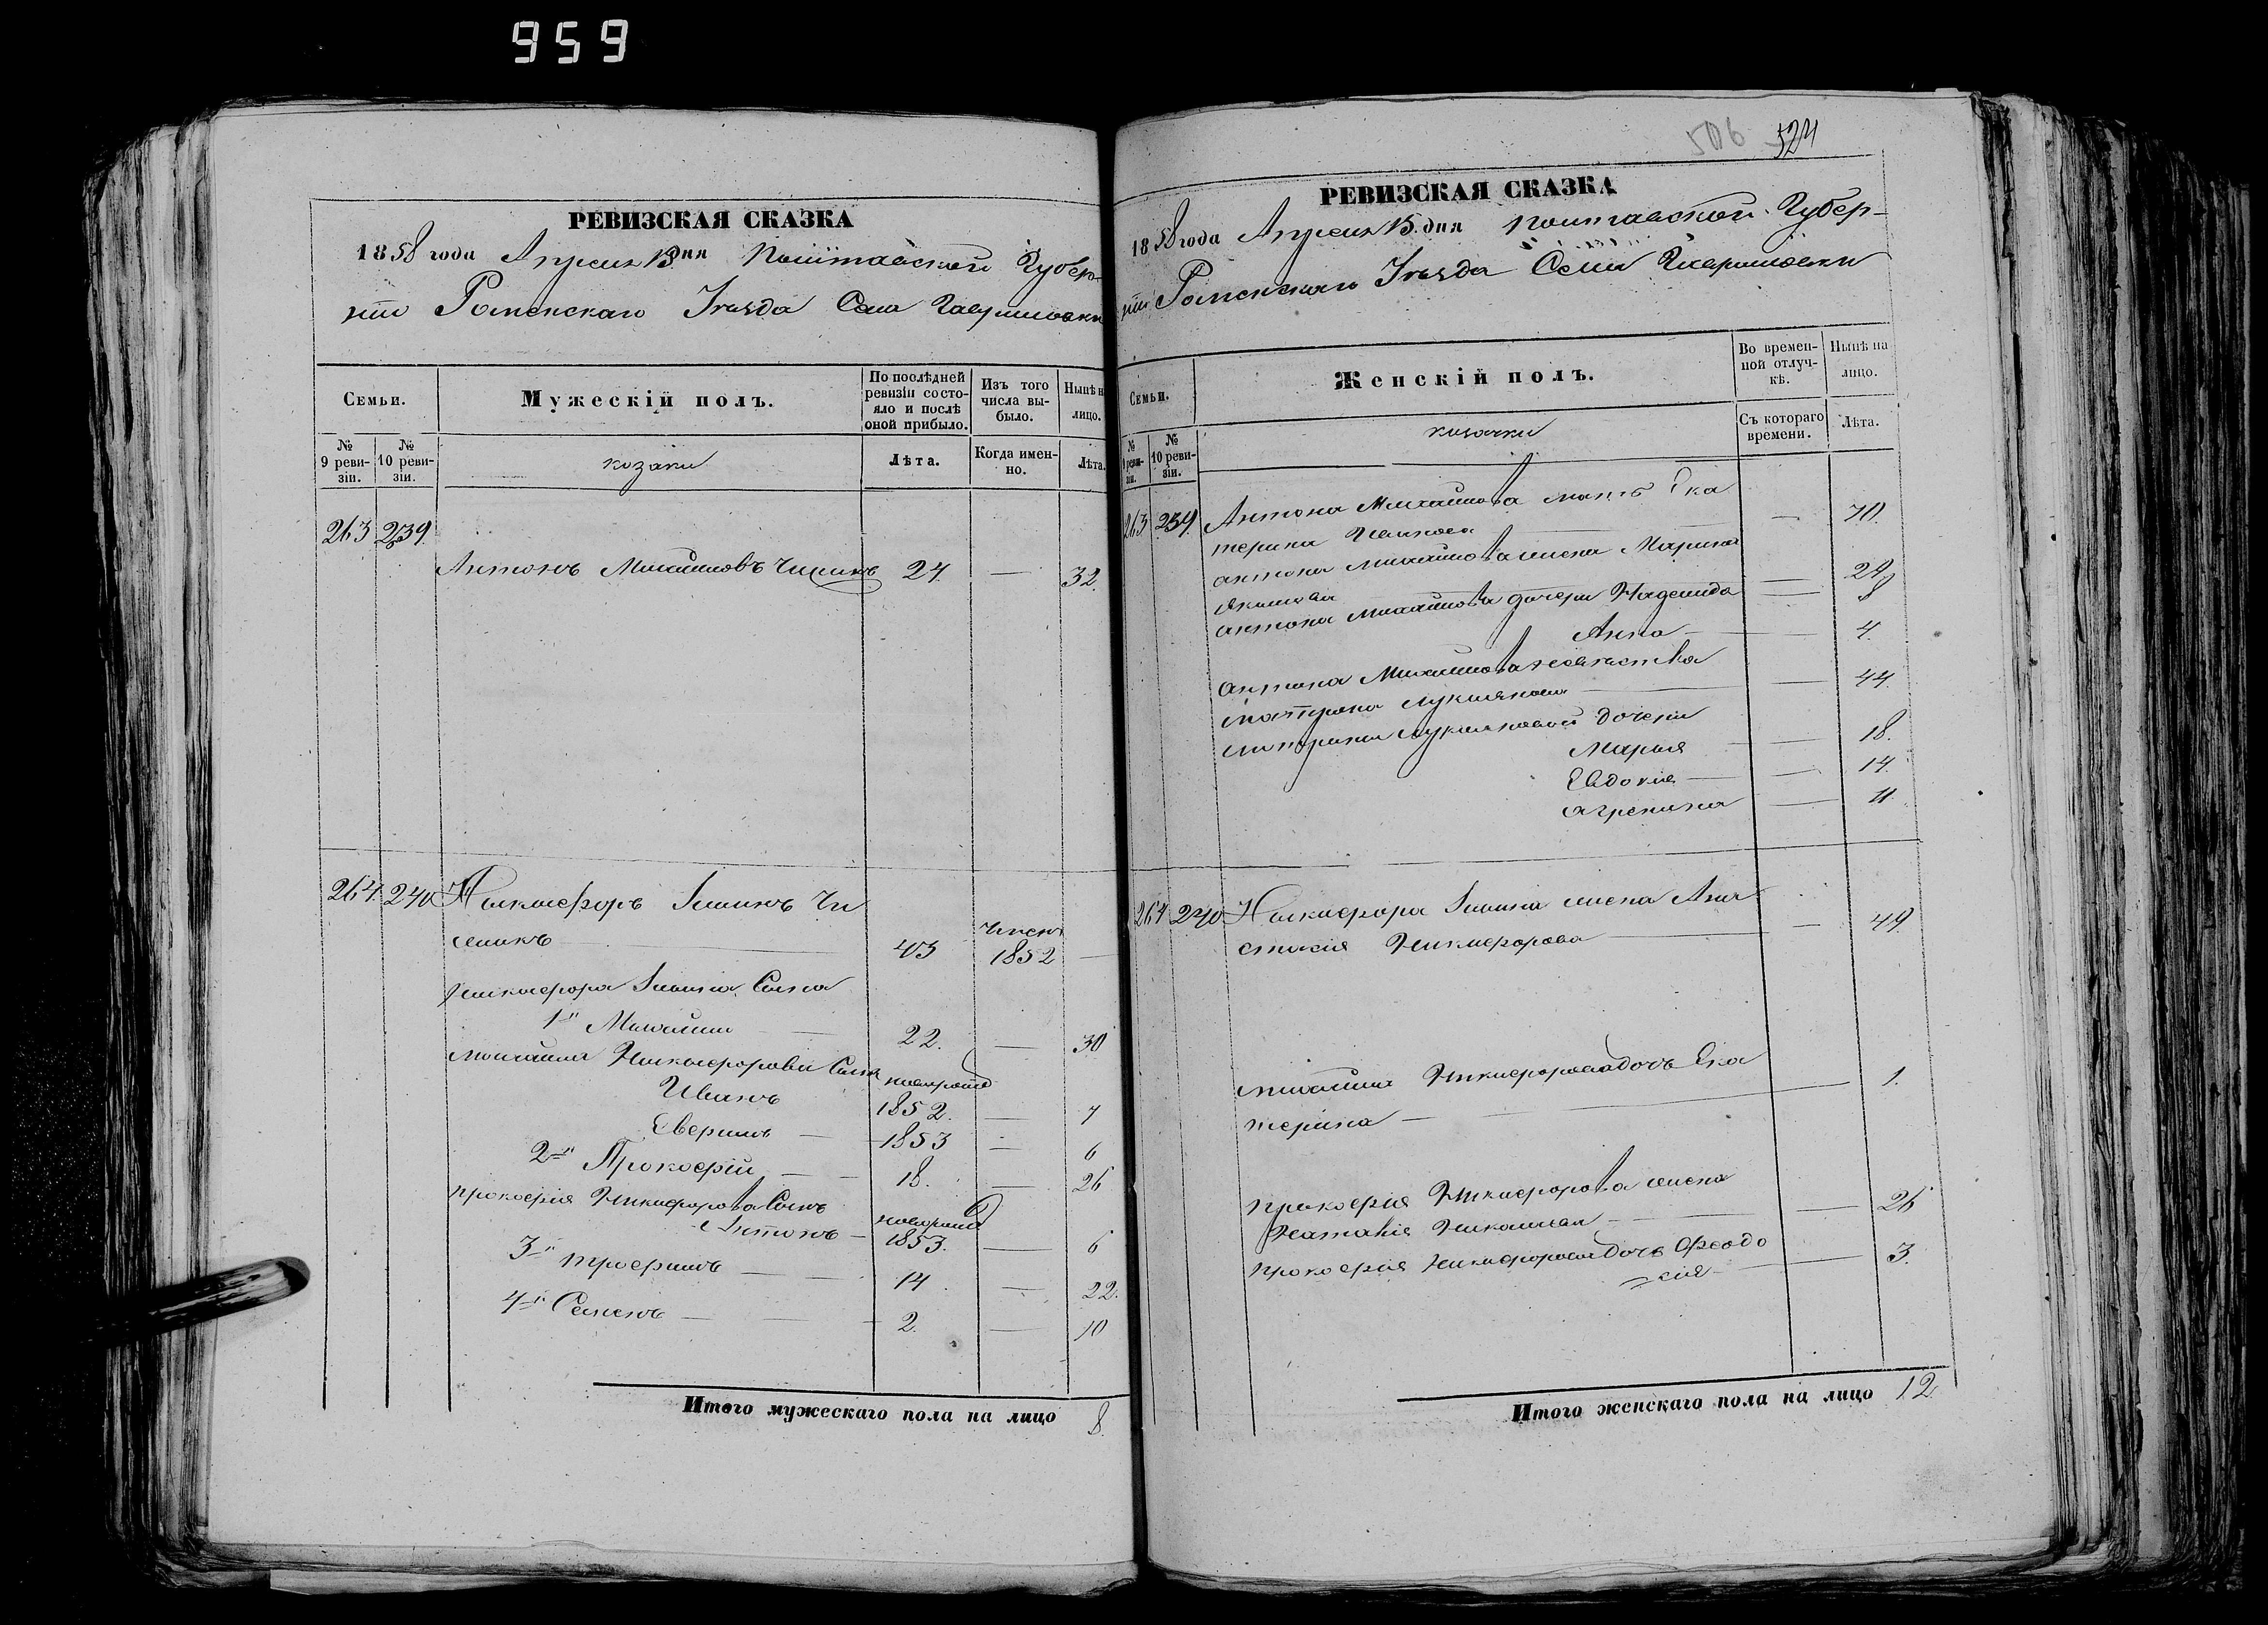 959
РЕВИЗСКАЯ СКАЗКА
1858 года Апреля 15 дня Полтавской Губер-
ніи Роменскаго Уезда Села Гавриловки
Семьи.
Мужескій полъ.
По послѣдней ревизіи состо-яло и послѣ оной прибыло.
Изъ того числа вы-было.
Нынѣ н лицо.
№ 9 реви-зіи.
№ 10 реви-зіи.
козаки
Лѣта.
Когда имен-но.
Лѣта.
263 239.
Антонъ Михайловъ 24. — 32.
264. 240 Никифоръ Чи
ликъ 43 1852 —
Никифора Сына
1й Михайла 22. — 30
Михайла Никифорова Сынъ новорожд
Иванъ 1852. — 7
1853 — 6
2й Прокофій — 18. — 26
Прокофія Никифорова Сынъ
Антонъ — новорожд 1853. — 6
3й Трофимъ — 14. — 22.
4й Семенъ — 2. — 10
Итого мужескаго пола на лицо 8.
506 524
РЕВИЗСКАЯ СКАЗКА
1858 года Апреля 15. дня Полтавской Губер-
ніи Роменскаго Уезда Села Гавриловки
Семьи.
Женскій полъ.
Во времен-ной отлуч-кѣ.
Нынѣ на лицо.
№ 9 реви-зіи.
№ 10 реви-зіи.
козачки
Съ котораго времени.
Лѣта.
263 239. Антона Михайлова мать Ека
терина Иванова — 70.
Антона Михайлова жена Марина
Якимова — 29
Антона Михайлова дочери Надежда — 8
Анна — 4.
Антона Михайлова невестка
Матрона Лукьянова — 44.
Матроны Лукьяновой дочери
Марья — 18.
Евдокия — 14.
Агрепина — 11.
264 240 Никифора жена Ана
стасия Никифорова — 49
Михайла Никифорова дочь Ека
терина — 1.
Прокофія Никифорова жена
Наталія — 26
Прокофія Никифорова дочь Феодо
сія — 3.
Итого женскаго пола на лицо 12